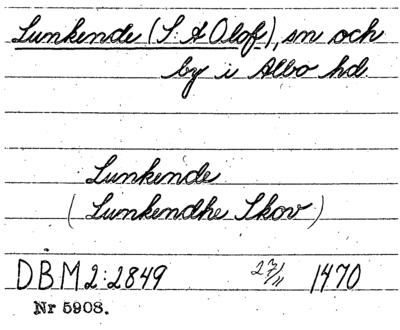 Lunkende (S: A Olof), sn och
by i Albo hd.
Lunkende
(Lunkendhe Skov)
DBM 2:2849 27/11 1470
Nr 5908.